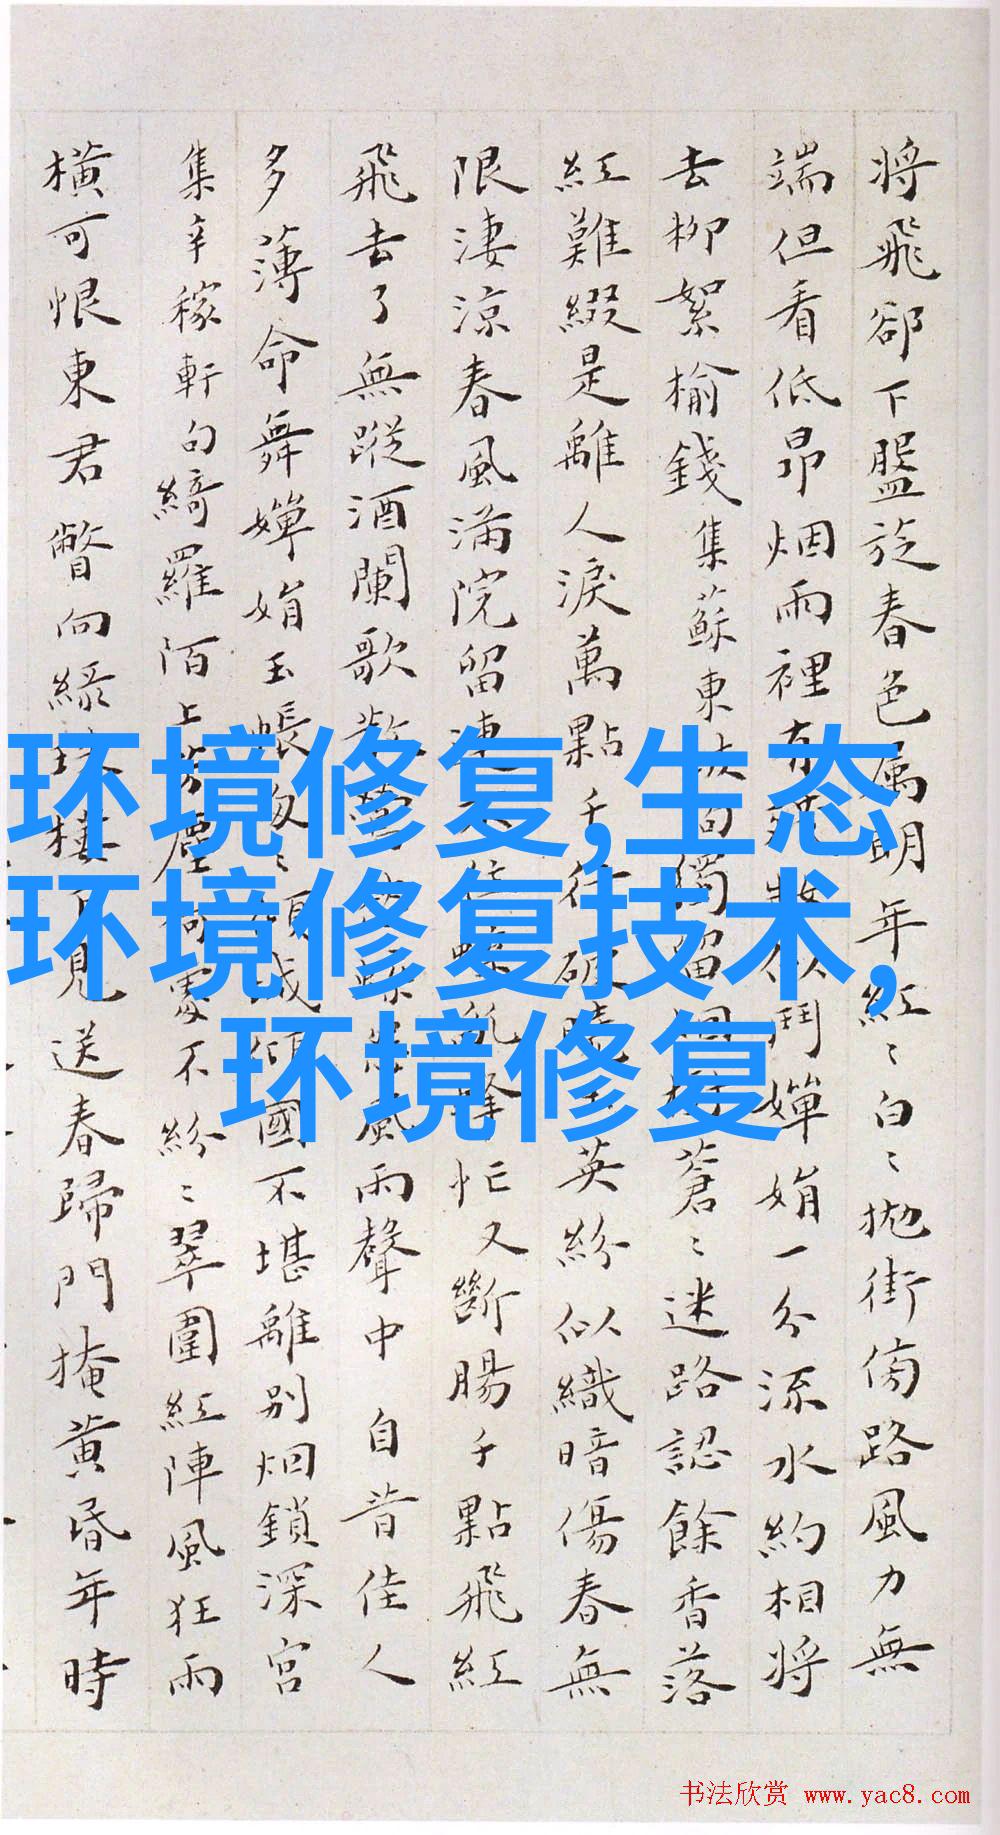 将飛卻下盤旋春色属明年紅〻白〻拋街傍路風力無
端但看低昂烟雨裡有
鬥嬋娟一分流水約相將
去柳絮榆錢集蘇東
蒼〻迷路認餘香落
紅難綴是離人淚萬點千行破
英紛似織暗傷春無
限淒涼春風滿院留連
忙又斷腸千點飛紅
飛去了無蹤酒闌歌散
風雨聲中自昔佳人
多薄命舞嬋娟玉帳匆〻
國不堪離別烟鎖深宮
集辛稼軒句綺羅陌上芳塵
不紛〻翠圍紅陣風狂雨
橫可恨東君瞥向綠珠樓下見送春歸門掩黃昏年時
环境修复,生态
环境修复技术,
环境修复
书法欣赏 www.yac8.com